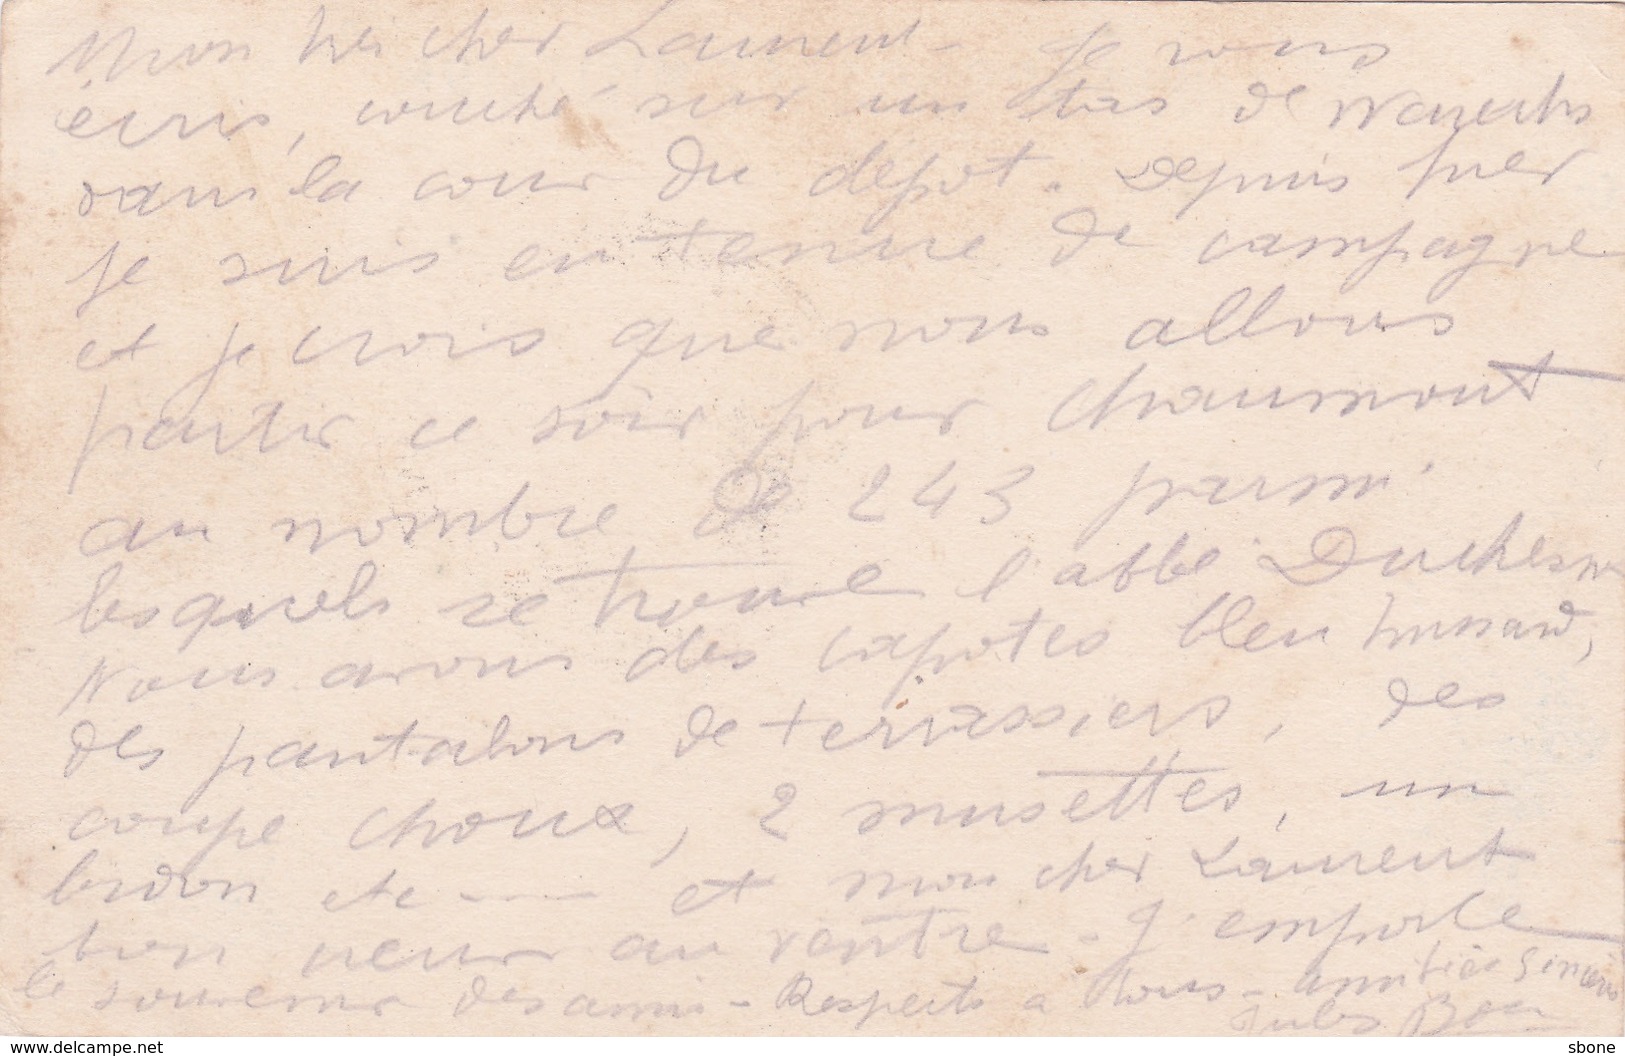 Mon très cher Laurent - Je vous
écris, couché sur un tas de
dans la cour du dépot. Depuis hier
je suis en tenue de campagne
et je crois que nous allons
partir ce soir pour Chaumont
au nombre de 243 parmi
lesquels se trouve l'abbé Duchesne
Nous avons des capotes bleu hussard,
des pantalons de terrassiers, des
coupe choux, 2 musettes, un
bidon etc --- et mon cher Laurent
bon cœur au ventre - J'emporte
le souvenir des amis - Respects à tous - amitiés sincères
Jules
www.delcampe.net
sbone